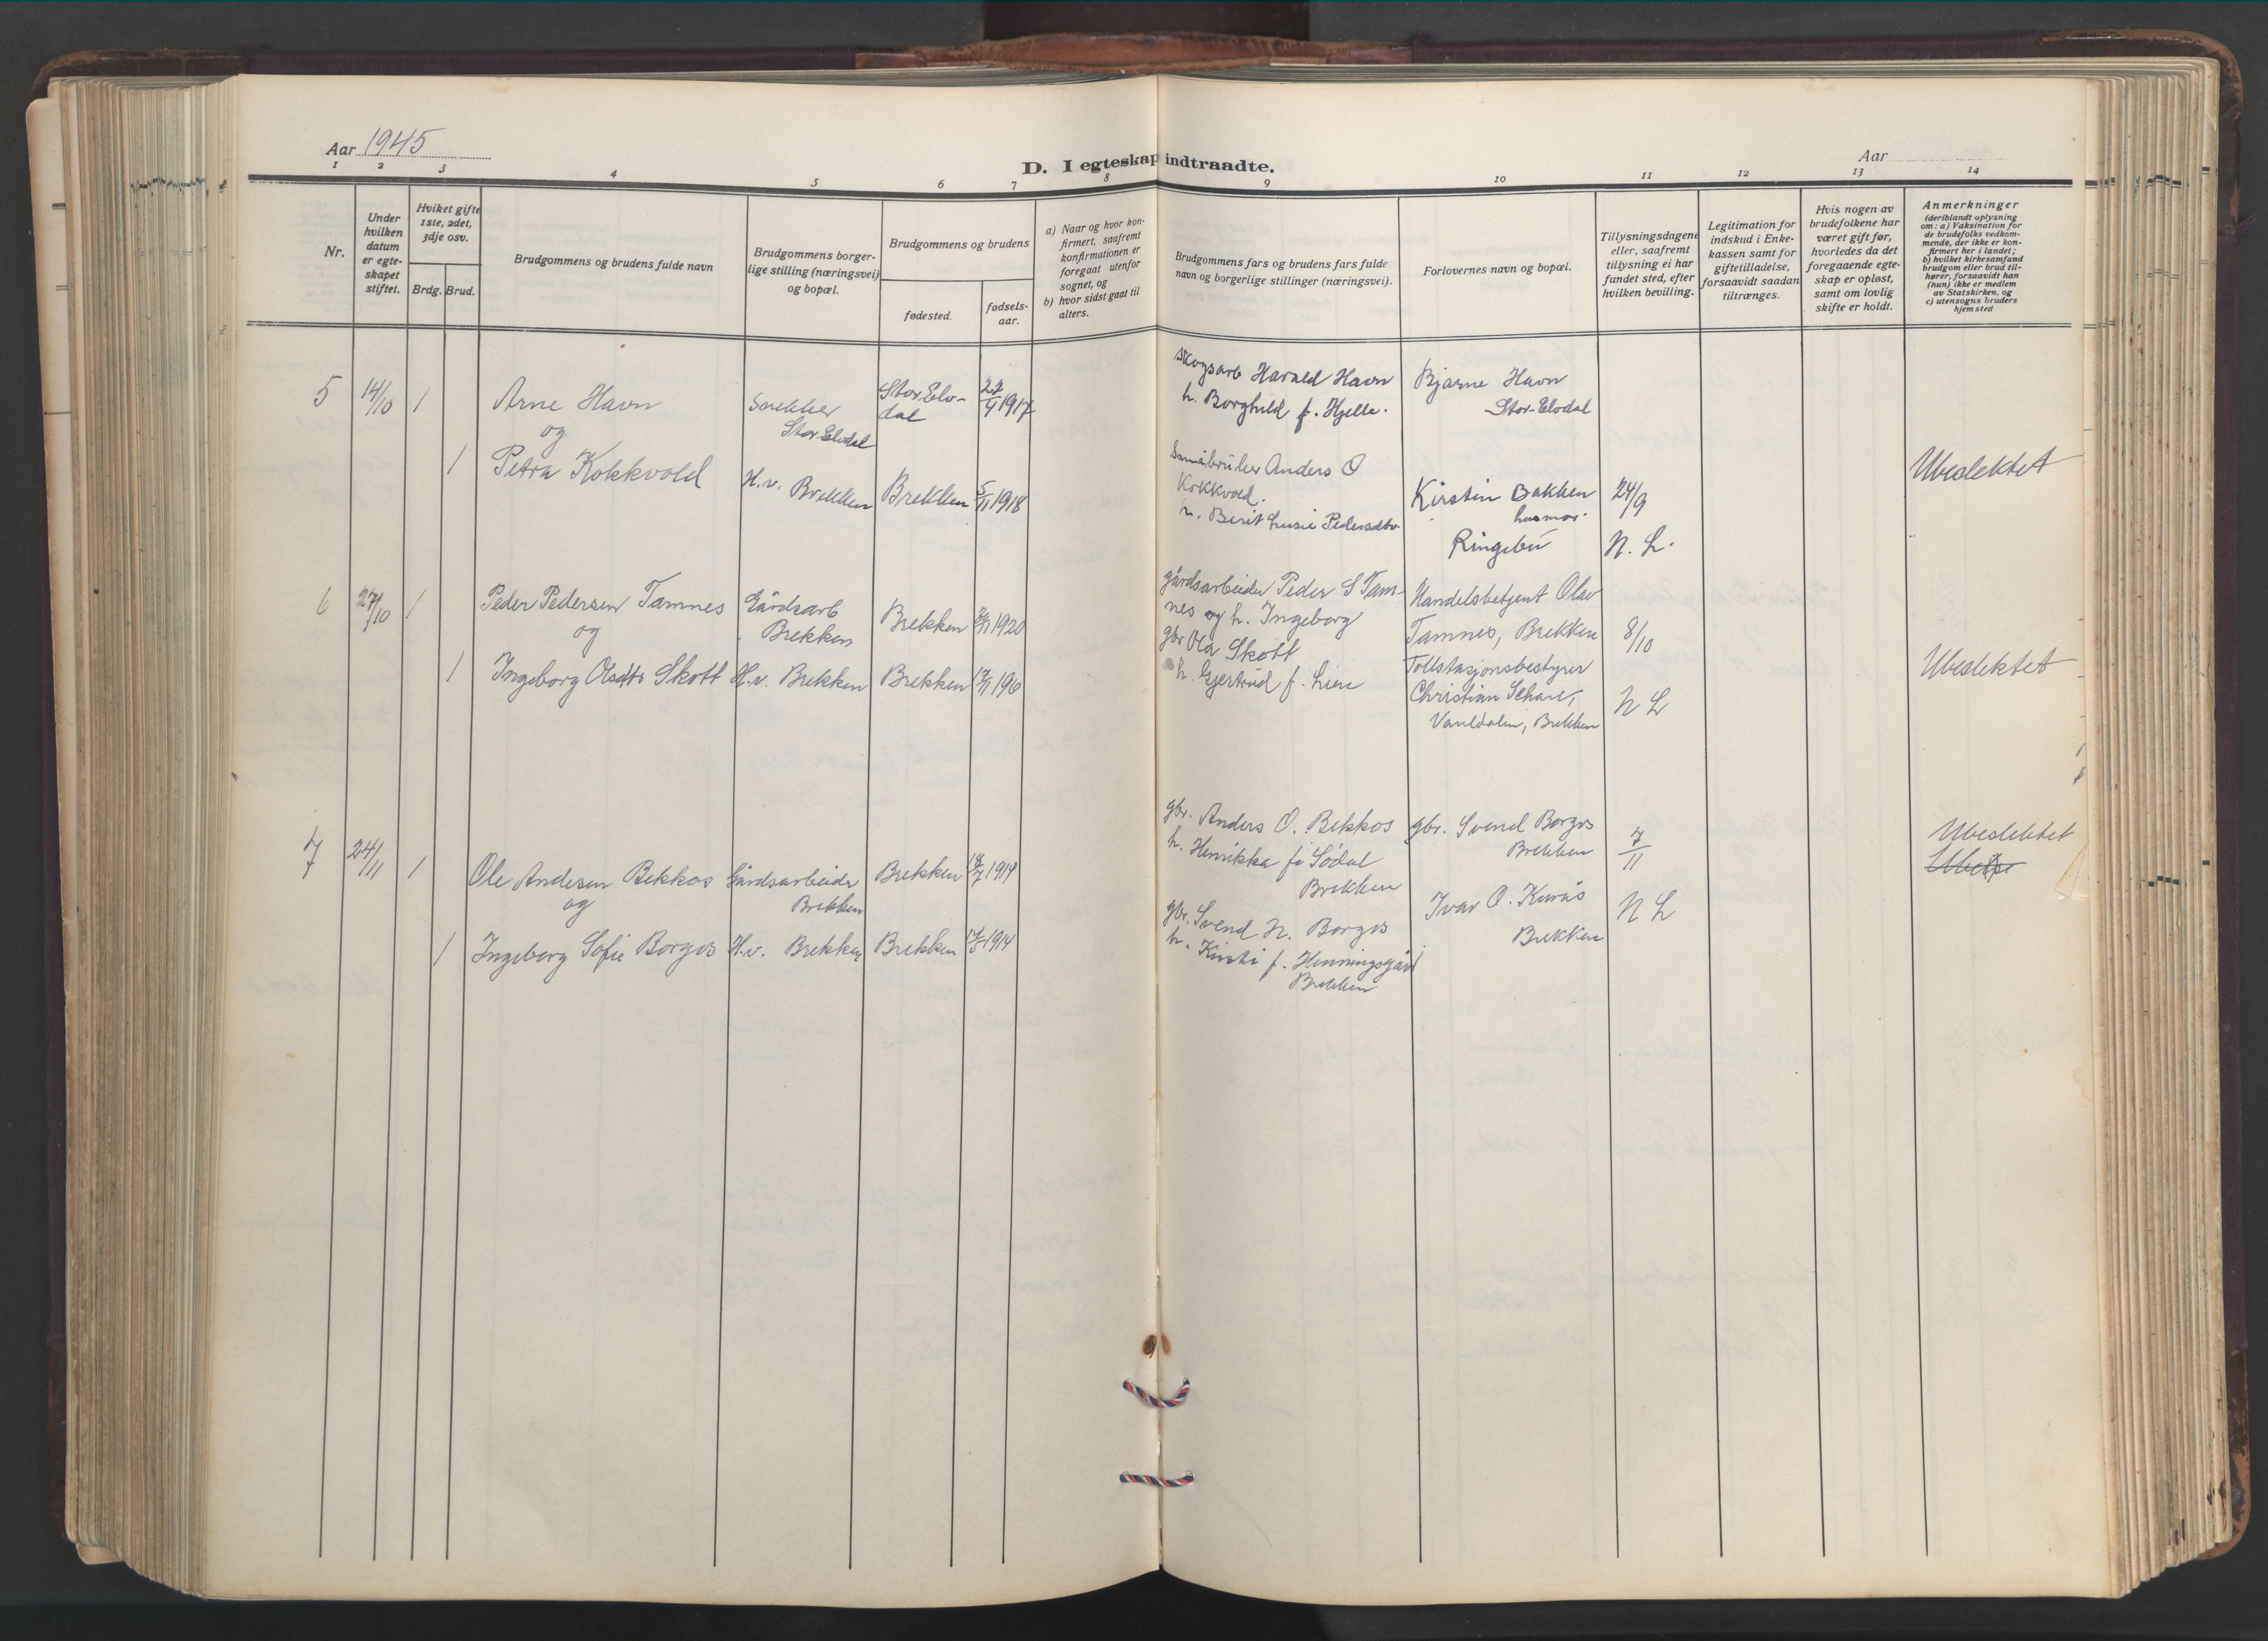 Aar 1945
D. I egteskap indtraadte.
Aar
1 2 3 4 5 6 7 8 9 10 11 12 13 14
Nr.
Under
hvilken
datum
er egte-
skapet
stiftet.
Hviket gifte
1ste, 2det,
3dje osv.
Brdg. Brud.
Brudgommens og brudens fulde navn
Brudgommens borger-
lige stilling (næringsvei)
og bopæl.
Brudgommens og brudens
fødested.
fødsels-
aar.
a) Naar og hvor kon-
firmert, saafremt
konfirmationen er
foregaat utenfor
sognet, og
b) hvor sidst gaat til
alters.
Brudgommens fars og brudens fars fulde
navn og borgerlige stillinger (næringsvei).
Forlovernes navn og bopæl.
Tillysningsdagene
eller, saafremt
tillysning ei har
fundet sted, efter
hvilken bevilling.
Legitimation for
indskud i Enke-
kassen samt for
giftetilladelse,
forsaavidt saadan
tiltrænges.
Hvis nogen av
brudefolkene har
været gift før,
hvorledes da det
foregaaende egte-
skap er opløst,
samt om lovlig
skifte er holdt.
Anmerkninger
(deriblandt oplysning
om: a) Vaksination for
de brudefolks vedkom-
mende, der ikke er kon-
firmert her i landet;
b) hvilket kirkesamfund
brudgom eller brud til-
hører, forsaavidt han
(hun) ikke er medlem
av Statskirken, og
c) utensogns bruders
hjemsted
5 14/10 1
Arne Havn
og
1 Petra Kokkvold
Snekker
Stor Elvdal
H.v. Brekken
Stor Elv-
dal
Brekken
1917
5/11 1918
Skogsarb Harald Havn
h. Borghild f. Hjelle.
Småbruker Anders O
Kokkvold.
h. Berit Lusie Pedersdtr.
Bjarne Havn
Stor-Elvdal
Kirstin Bakken
husmor.
Ringebu
24/9
N. L.
Ubeslektet
6 27/10 1
Peder Pedersen Tamnes
og
1 Ingeborg Olsdtr Skott
Gårdsarb
Brekken
H.v. Brekken
Brekken
Brekken
1920
gårdsarbeider Peder S Tam-
nes og h. Ingeborg
gbr Ola Skott
h. Gjertrud f. Lien
Handelsbetjent Olav
Tamnes, Brekken
Tollstasjonsbestyrer
Christian
Vauldalen, Brekken
8/10
N L
Ubeslektet
7 24/11 1
Ole Andersen Bekkos
og
1 Ingeborg Sofie Borgos
Gårdsarbeider
Brekken
H.v. Brekken
Brekken
Brekken
18/7 1914
1914
gbr. Anders O. Bekkos
h. Henrikka f. Sødal
Brekken
gbr. Svend H. Borgos
h. Kirsti f. Henningsgård
Brekken
gbr. Svend Borgos
Brekken
Ivar O. Kurås
Brekken
7/11
N L
Ubeslektet